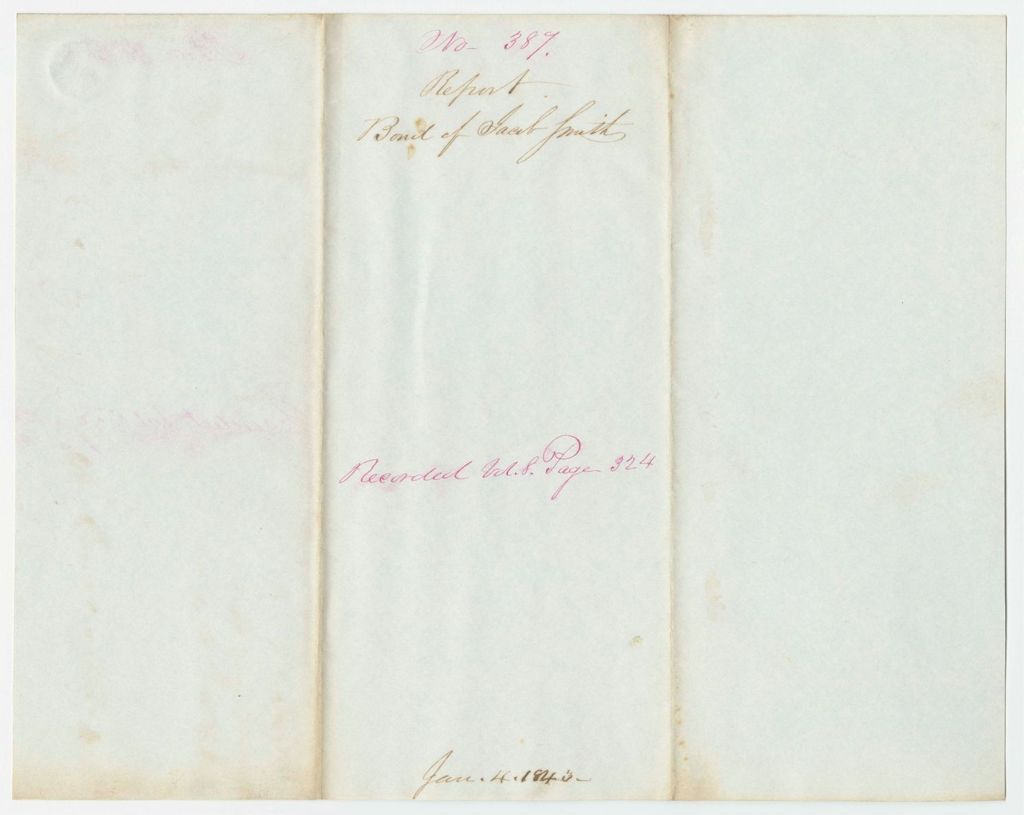 No. 387.
Report
Bond of Jacob Smith
Recorded Vol. 8. Page 324
Jan. 4. 1843